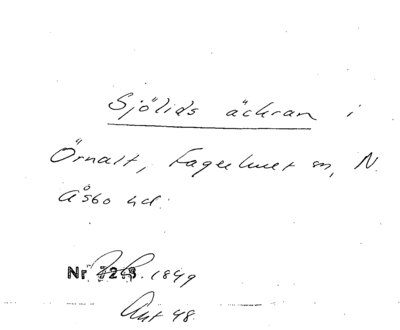 Sjölids äckran i
Örnalt, Fagerhult sn, N.
Åsbo hd.
Nr 1849
Akt 48.